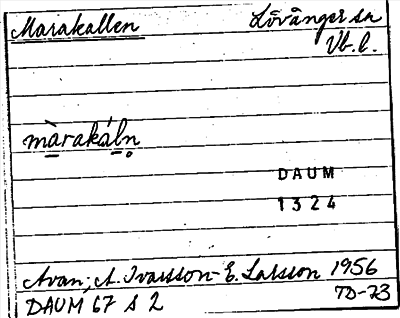 Marakallen Lövånger sn
Vb.l.
màrakáln̥
DAUM
1324
Avan; A. Ivarsson-E. Larsson 1956
DAUM 67 s 2 TD-73